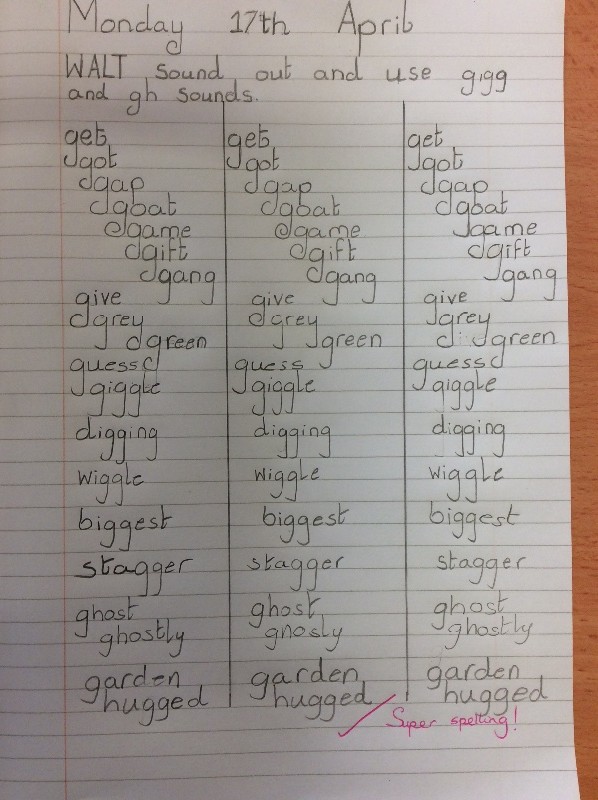 Monday 17th April
WALT sound out and use g,gg
and gh sounds.
get get get
got got got
gap gap gap
goat goat goat
game game game
gift gift gift
gang gang gang
give give give
grey grey grey
green green green
guess guess guess
giggle giggle giggle
digging digging digging
wiggle wiggle wiggle
biggest biggest biggest
stagger stagger stagger
ghost ghost ghost
ghostly ghosly ghostly
garden garden garden
hugged hugged hugged
Super spelling!